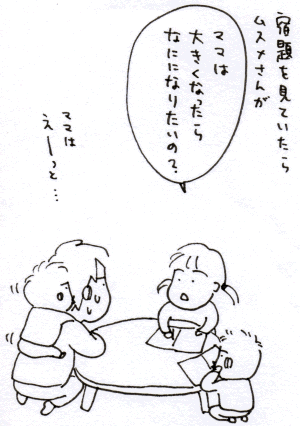 宿題を見ていたら
ムスメさんが
ママは
大きくなったら
なにになりたいの?
ママは
えーっと…